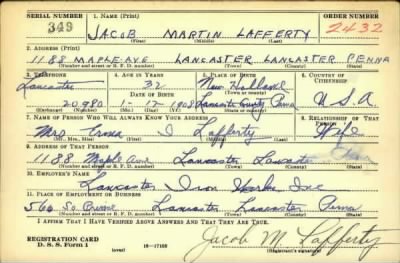 SERIAL NUMBER 1. NAME (Print) ORDER NUMBER
349 JACOB MARTIN LAFFERTY 2432
(First) (Middle) (Last)
2. ADDRESS (Print)
1188 MAPLE AVE LANCASTER LANCASTER PENNA
(Number and street or R. F. D. number) (Town) (County) (State)
3. TELEPHONE 4. AGE IN YEARS 5. PLACE OF BIRTH 6. COUNTRY OF CITIZENSHIP
Lancaster 32 New Holland
DATE OF BIRTH (Town or county)
20980 1-17-1908 Lancaster County Penna U.S.A.
(Exchange) (Number) (Mo.) (Day) (Yr.) (State or country)
7. NAME OF PERSON WHO WILL ALWAYS KNOW YOUR ADDRESS 8. RELATIONSHIP OF THAT PERSON
Mrs. I Lafferty Wife
(Mr., Mrs., Miss) (First) (Middle) (Last)
9. ADDRESS OF THAT PERSON
1188 Maple Ave Lancaster Lancaster Penna
(Number and street or R. F. D. number) (Town) (County) (State)
10. EMPLOYER'S NAME
Lancaster Iron Works Inc
11. PLACE OF EMPLOYMENT OR BUSINESS
So. Lancaster Lancaster Penna
(Number and street or R. F. D. number) (Town) (County) (State)
I AFFIRM THAT I HAVE VERIFIED ABOVE ANSWERS AND THAT THEY ARE TRUE.
REGISTRATION CARD Jacob M. Lafferty
D. S. S. Form 1 (over) 16-17105 (Registrant's signature)